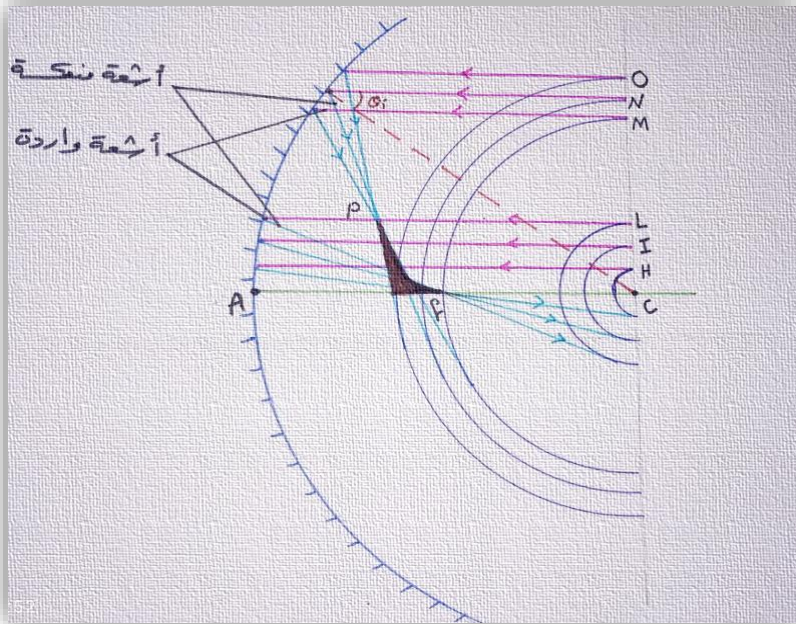 أشعة منعكسة
أشعة واردة
θi
O
N
M
P
L
I
H
A
f
C